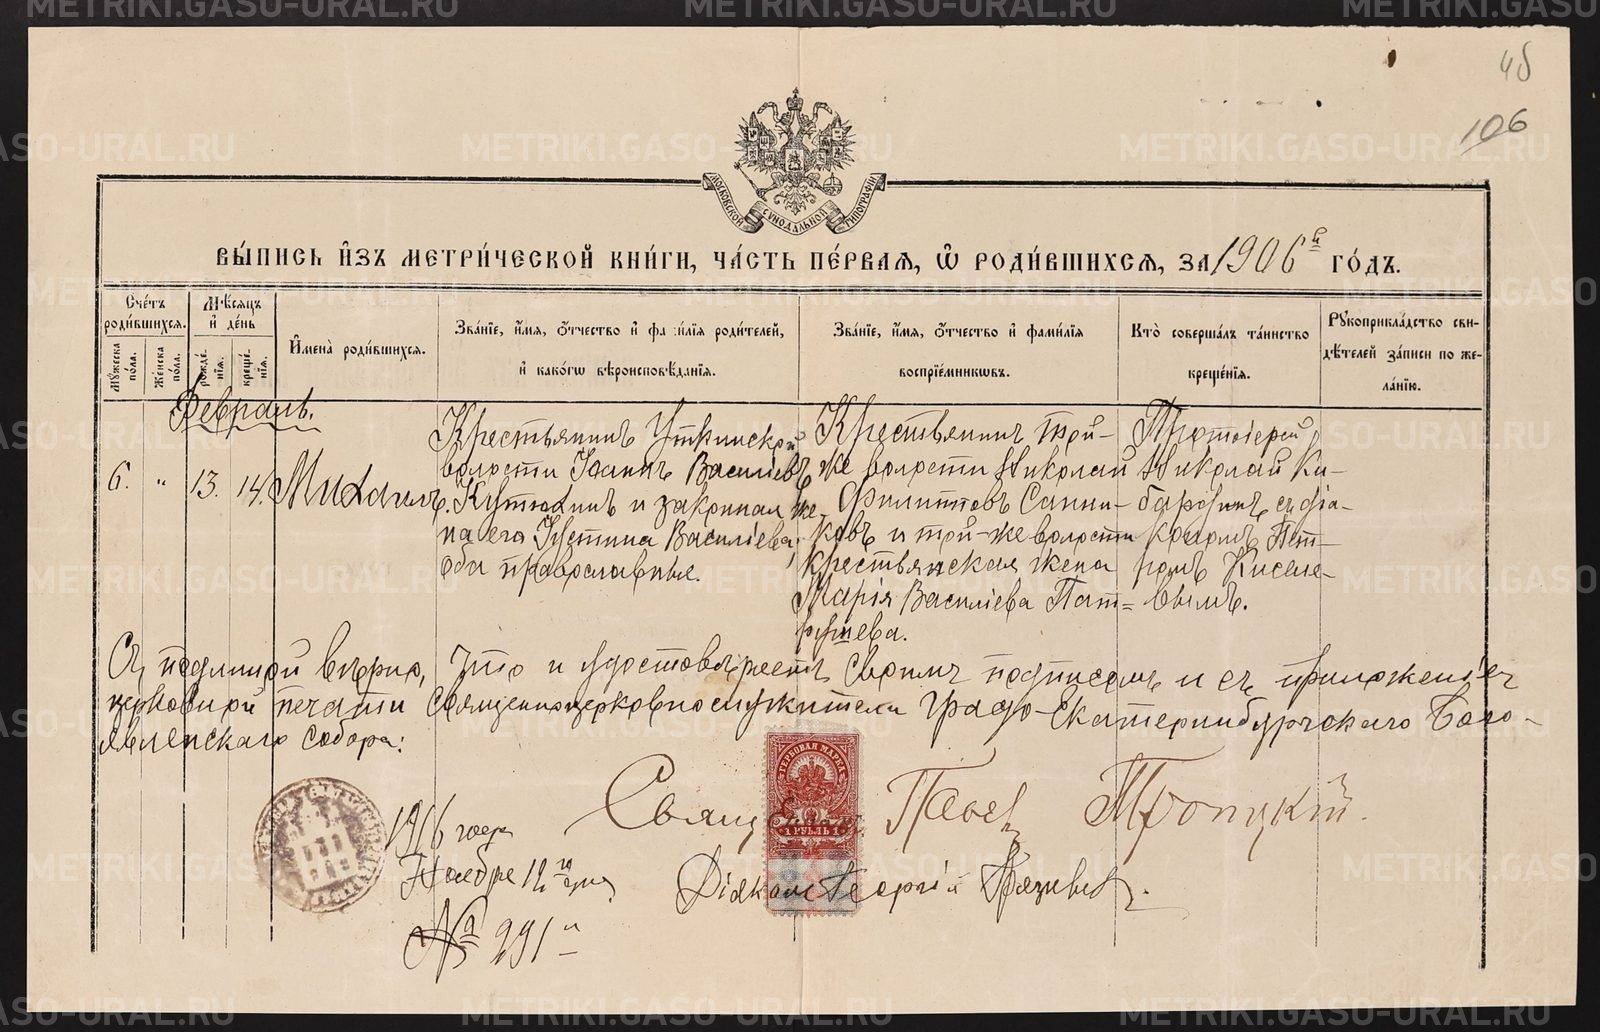 45
106
МОСКОВСКОЙ СѴНОДАЛЬНОЙ ТИПОГРАФІИ
ВЫ́ПИСЬ И҆ЗЪ МЕТРИ́ЧЕСКОЙ КНИ́ГИ, ЧА́СТЬ ПЕ́РВАѦ, Ѡ҆ РОДИ́ВШИХСѦ, ЗА 1906й ГО́ДЪ.
Сче́тъ роди́вшихсѧ.
Мꙋ́жеска по́ла.
Же́нска по́ла.
Мѣ́сѧцъ и҆ де́нь
рожде́нїѧ.
креще́нїѧ.
И҆мена̀ роди́вшихсѧ.
Зва́нїе, и҆́мѧ, ѻ҆́тчество и҆ фами́лїѧ роди́телей,
и҆ како́гѡ вѣроисповѣ́данїѧ.
Зва́нїе, и҆́мѧ, ѻ҆́тчество и҆ фами́лїѧ
воспрїе́мникѡвъ.
Кто̀ соверша́лъ та́инство
креще́нїѧ.
Рꙋкоприкла́дство сви-
дѣ́телей за́писи по же-
ла́нїю.
Февраль.
6.
"
13.
14.
Михаилъ.
Крестьянинъ Уткинской
волости Іоаннъ Васильевъ
Кутюхинъ и законная же-
на его Устина Васильева,
оба православные.
Крестьянинъ той-
же волости Николай
Филипповъ Санни-
ковъ и той-же волости
крестьянская жена
Марія Васильева Пат-
рушева.
Протоіерей
Николай Ки-
бардинъ съ діа-
кономъ Пет-
ромъ Киселе-
вымъ.
Съ подлинной вѣрно, что и удостовѣряетъ своимъ подписомъ и съ приложеніемъ
церковной печати Священноцерковнослужители градо-Екатеринбургскаго Бого-
явленскаго собора:
ГЕРБОВАЯ МАРКА
1 РУБЛЬ 1
1916 года
Ноября 12го дня
№ 291й
Священникъ Павелъ Троицкій.
Діяконъ Георгій
METRIKI.GASO-URAL.RU